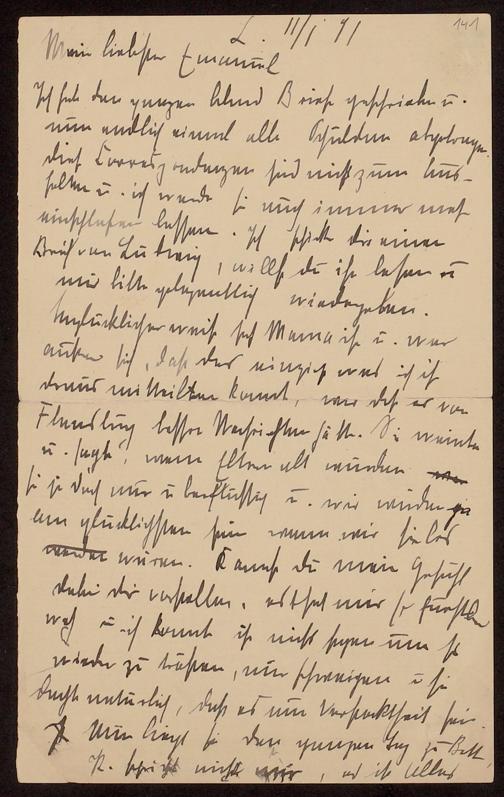 141
L. 11/I 91
Mein liebster Emanuel
Ich habe den ganzen Abend Briefe geschrieben u.
nun endlich einmal alle Schulden abgetragen.
diese Correspondenzen sind nicht zum Aus-
halten u. ich werde sie auch immer mehr
einschlafen lassen. Ich schicke dir einen
Brief von Ludwig, willst du ihn lesen u
mir bitte gelegentlich wiedergeben.
Unglücklicherweise sah Mama ihn u. war
außer sich, daß das einzige was ich ihr
draus mittheilen konnte, war daß er von
Flensburg bessere Nachrichten hätte. Sie weinte
u. sagte, wenn Eltern alt würden
sie ja doch nur überflüssig u. wir würden ja
am glücklichsten sein wenn wir sie los
wären. Kannst du mein Gefühl
dabei dir vorstellen, es that mir so furchtbar
weh u ich konnte ihr nichts sagen um sie
wieder zu trösten, nur schweigen u sie
dachte natürlich, daß es nur Verstocktheit sei.
Nun liegt sie den ganzen Tag zu Bett
spricht nicht, es ist Alles